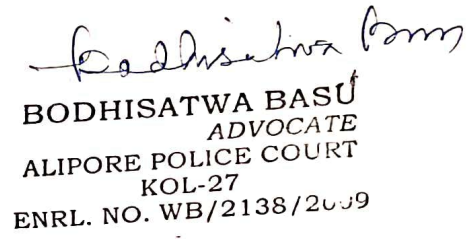 Bodhisatwa Basu
BODHISATWA BASU
ADVOCATE
ALIPORE POLICE COURT
KOL-27
ENRL. NO. WB/2138/2009